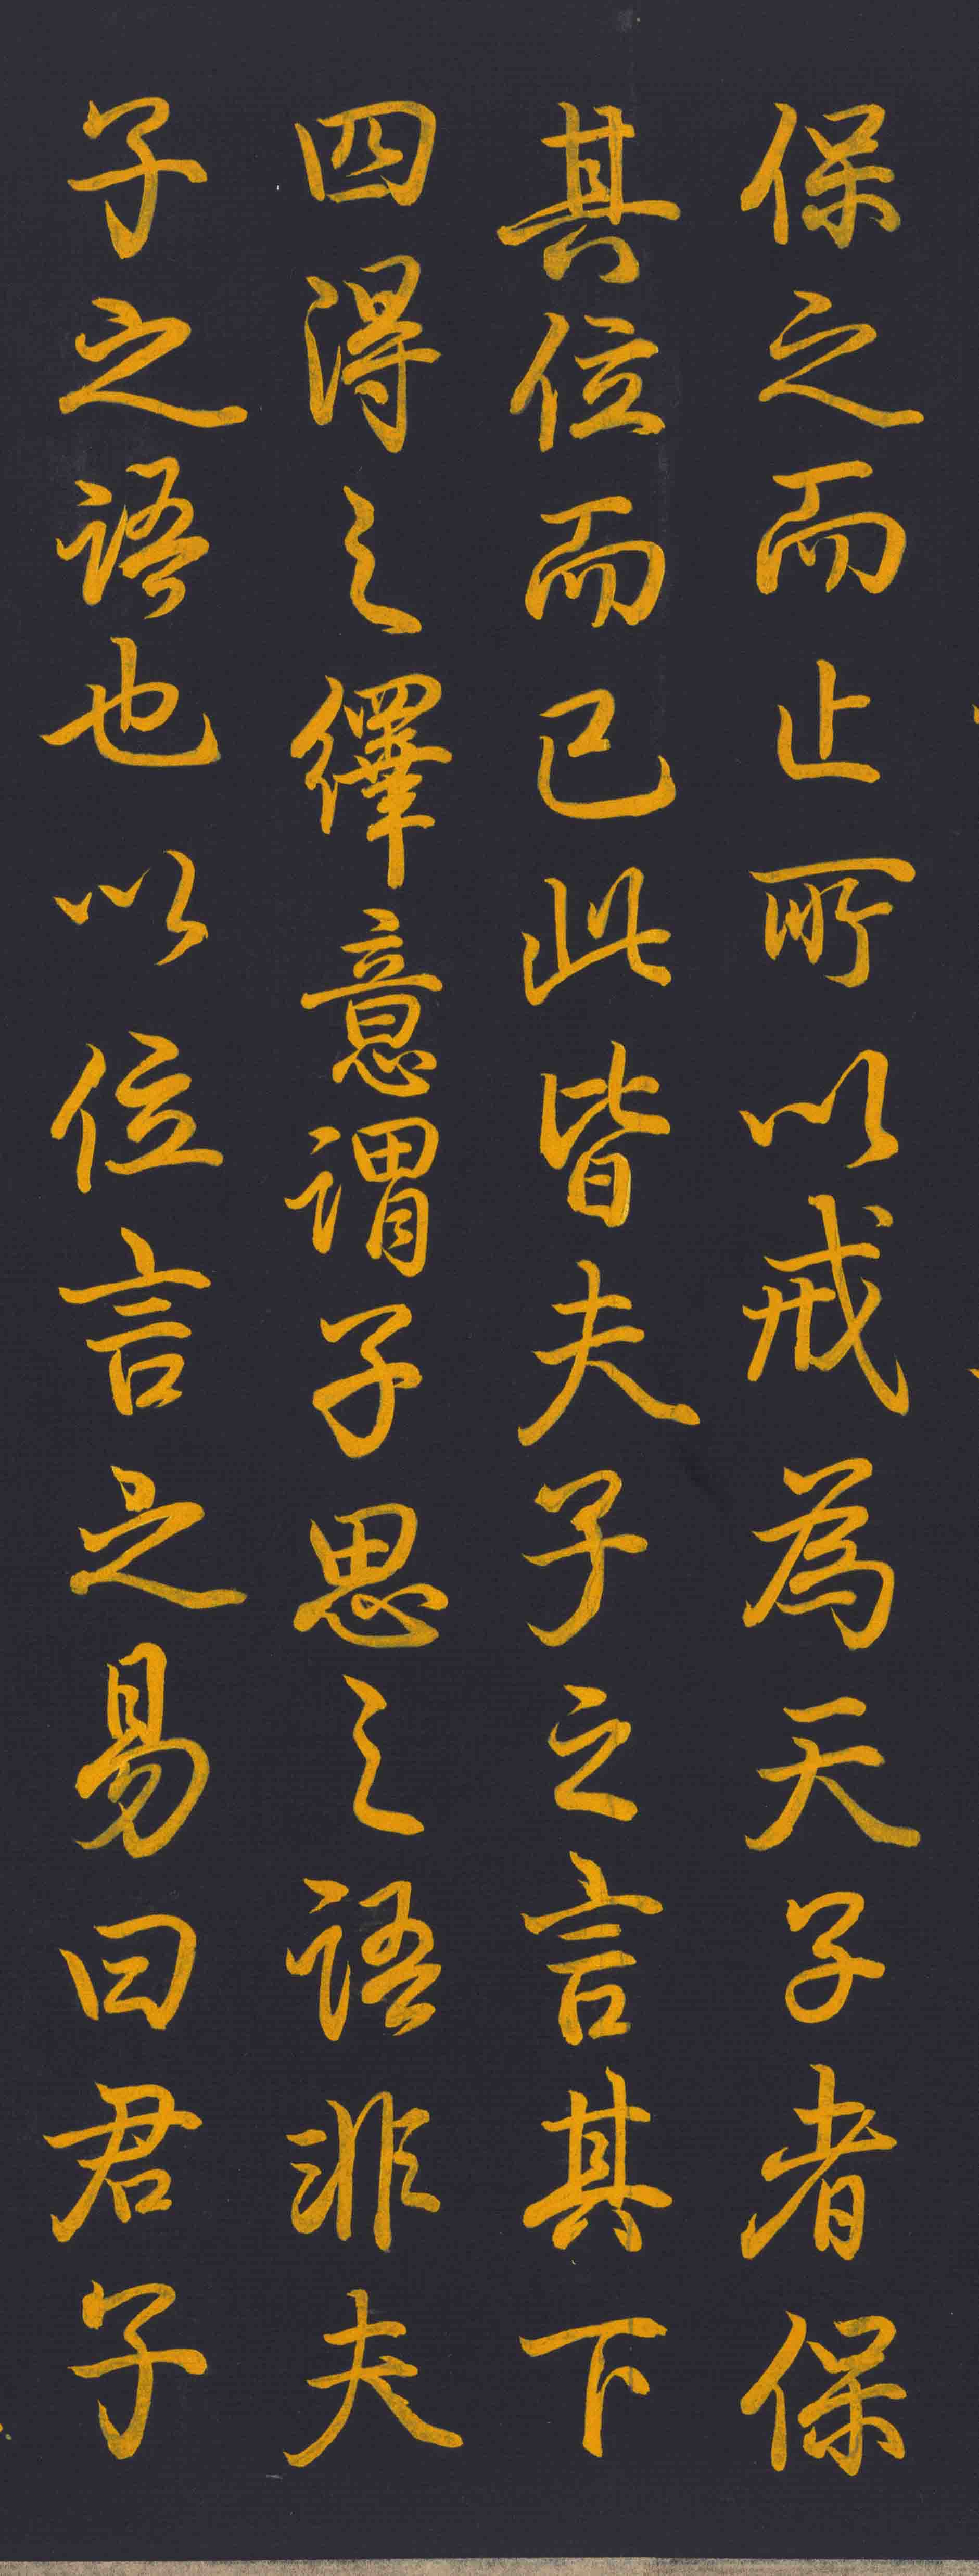 保之而止所以戒為天子者保
其位而已此皆夫子之言其下
四得之繹意謂子思之語非夫
子之語也以位言之易曰君子